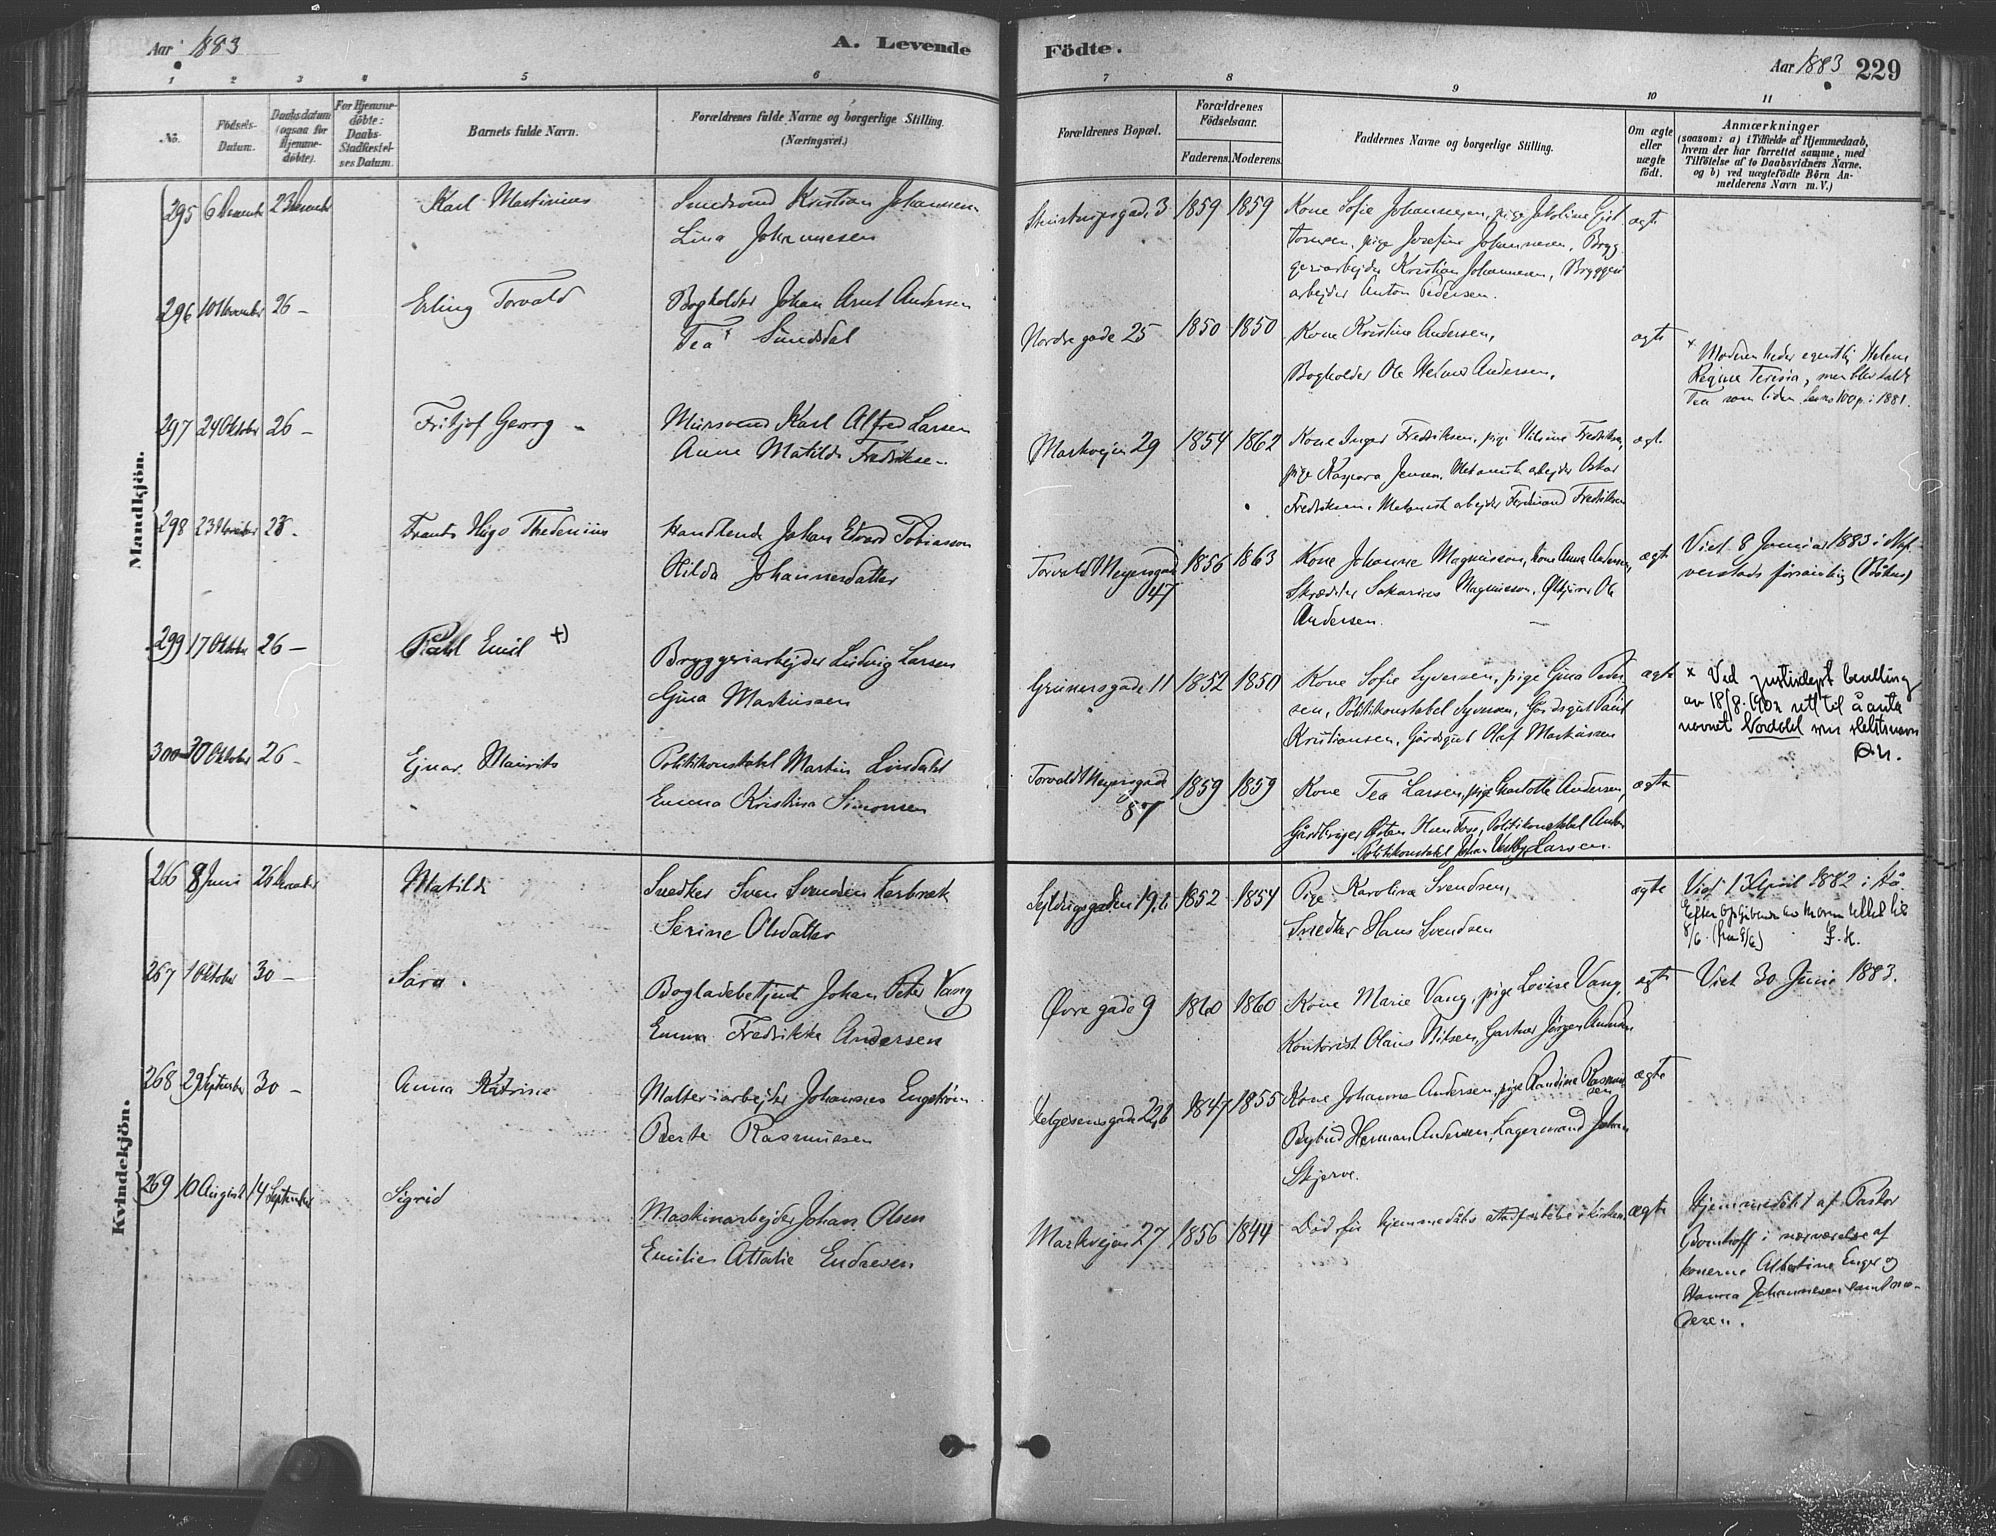 Aar 1883
A. Levende Födte.
Aar 1883 229
1 2 3 4 5 6 7 8 9 10 11
No.
Födsels-
Datum.
Daabsdatum
(ogsaa for
Hjemme-
döbte).
For Hjemme-
döbte:
Daabs-
Stadfæstel-
ses Datum.
Barnets fulde Navn.
Forældrenes fulde Navne og borgerlige Stilling.
(Næringsvei.)
Forældrenes Bopæl.
Forældrenes
Födselsaar.
Faderens. Moderens.
Faddernes Navne og borgerlige Stilling.
Om ægte
eller
uægte
födt.
Anmærkninger
(saasom: a) i Tilfælde af Hjemmedaab,
hvem der har forrettet samme, med
Tilföielse af to Daabsvidners Navne,
og b) ved uægtefödte Börn An-
melderens Navn m. V.)
Mandkjön.
295 6 23 Karl Martinius
Kristian Johannesen
Lina Johannesen
3 1859 1859
Kone Sofie Johannesen, pige
pige Josefine Johannesen, Bryg
geriarbejder Kristian Johannesen, Bryggeri
arbejder Anton Pedersen.
ægte
296 10 November 26 – Erling Torvald
Bogholder Johan Arnt Andersen
Tea Sundsdal
Nordre gade 25 1850 1850
Kone Kristine Andersen,
Bogholder Ole Helmer Andersen,
ægte
x Moderen heder egentlig Helene
Regine Teresia, men blev kaldt
Tea som liden. 1881.
297 24 Oktober 26 – Fritjof Georg
Mursvend Karl Alfred Larsen
Anne Matilde Fredriksen
Markvejen 29 1854 1862
Kone Inger Fredriksen, pige Fredriksen
pige Kaspara Jensen, Mekanisk arbejder Oskar
Fredriksen, Mekanisk arbejder Ferdinand Fredriksen
ægte
298 23 26 – Frants Hugo Thedenius
Handlende Johan Edvard Tobiasson
Hilda Johannesdatter
Torvald Meyersgade
47
1856 1863
Kone Johanne Magnusson, kone Anna Andersen,
Skrædder Sakarius Magnusson, Ole
Andersen.
ægte
Viet 8 Januar 1883 i
verstads församling
299 17 Oktober 26 – Emil +)
Bryggeriarbejder Ludvig Larsen
Gina Markussen
Grünersgade 11 1852 1850
Kone Sofie Syversen, pige Gina Peder
sen, Politikonstabel Syversen, Gårdsgut Paul
Kristiansen, Gårdsgut Olaf Markussen
ægte
x Ved justisdept bevilling
av 18/8. 1902 rett til å anta
navnet Nordahl som slektsnavn
300 30 Oktober 26 – Ejnar Maurits
Politikonstabel Martin Lindahl
Emma Kristina Simonsen
Torvald Meyersgade
87
1859 1859
Kone Tea Larsen, pige Charlotte Andersen,
Politikonstabel
Politikonstabel Johan Larsen.
ægte
Kvindekjön.
266 8 Juni 26 Matilde
Snedker Sven Svendsen
Serine Olsdatter
1852 1854
Pige Karoline Svendsen,
Snedker Hans Svendsen
ægte
Viet 1 April 1882 i
Efter
8/6.
267 1 Oktober 30 – Sara.
Bogladebetjent Johan Peter Vang
Emma Fredrikke Andersen
Øvre gade 9 1860 1860
Kone Marie Vang, pige Lovise Vang,
Kontorist Olaus Nilsen, Gartner Jørgen Andersen
ægte
Viet 30 Juni 1883.
268 29 September 30 – Anna Katrine
Malteriarbejder Johannes Engström
Berte Rasmussen
Helgesensgade 22b 1847 1855
Kone Johanne Andersen, pige Randine Rasmus
sen
Bybud Herman Andersen, Lagermand Johan
Skjerve.
ægte
269 10 August 14 September Sigrid
Maskinarbejder Johan Olsen
Emilie Attalie Endresen
Markvejen 27 1856 1844
Død før hjemmedåbs stadfæstelse i kirken
ægte
Hjemmedøbt af Pastor
Bomhoff i nærværelse af
konerne Albertine Enger og
Hanna Johannesen samt mo-
deren.